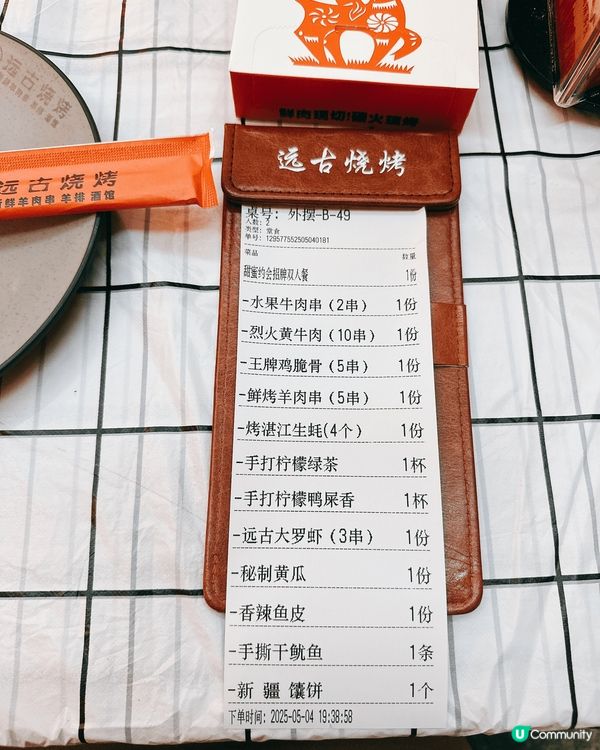 远古烧烤
鲜肉现切!碳火现烤
远古烧烤
新鲜羊肉串 羊排酒馆
远古烧烤
桌号: 外摆-B-49
人数: 2
类型: 堂食
单号: 129577552505040181
菜品 数量
甜蜜约会招牌双人餐 1份
-水果牛肉串(2串) 1份
-烈火黄牛肉(10串) 1份
-王牌鸡脆骨(5串) 1份
-鲜烤羊肉串(5串) 1份
-烤湛江生蚝(4个) 1份
-手打柠檬绿茶 1杯
-手打柠檬鸭屎香 1杯
-远古大罗虾(3串) 1份
-秘制黄瓜 1份
-香辣鱼皮 1份
-手撕干鱿鱼 1条
-新 疆 馕饼 1个
下单时间: 2025-05-04 19:38:58
U Community